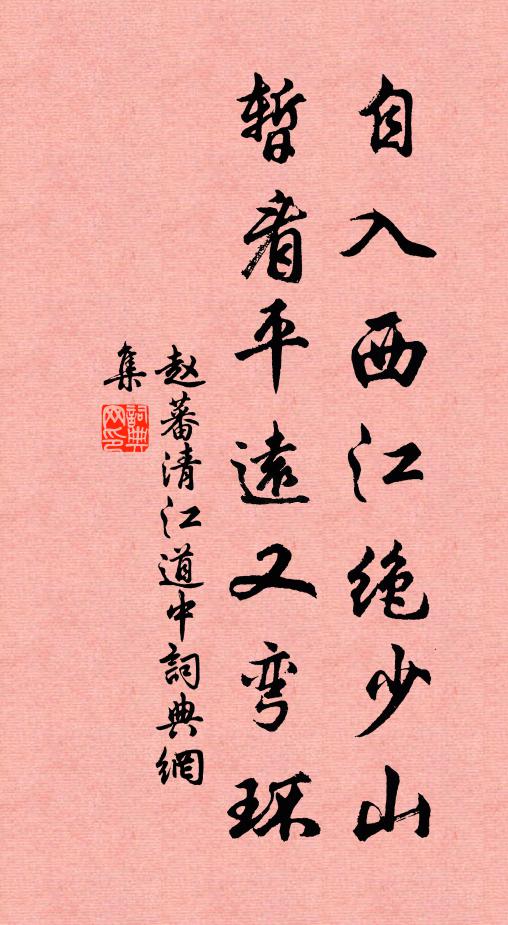 自入西江绝少山
暂看平遠又弯环
赵蕃清江道中詞典網
集
詞典网印